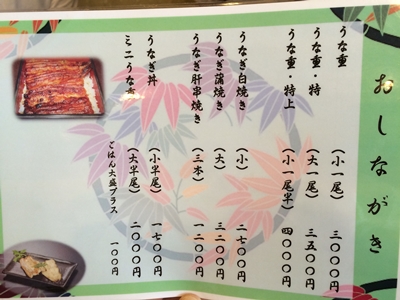 おしながき
うな重 （小一尾） 三〇〇〇円
うな重・特 （大一尾） 三五〇〇円
うな重・特上 （小一尾半） 四〇〇〇円
うなぎ白焼き （小） 二七〇〇円
うなぎ蒲焼き （大） 三二〇〇円
うなぎ肝串焼き （三本） 一二〇〇円
うなぎ丼 （小半尾） 一七〇〇円
ミニうな重 （大半尾） 二〇〇〇円
ごはん大盛プラス 一〇〇円